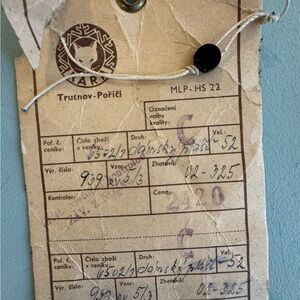 KARA
Trutnov-Poříčí
MLP-HS 22
Označení
volby
kvality:
C
Poř. č.
ceníku:
Číslo zboží
v ceníku:
Druh:
Vel.:
6502/7 dámský plášť 52
Výr. číslo:
Vzor:
Zhotovil:
939 5/3 02-325
Kontrolor:
Cena:
2420
C
Poř. č.
ceníku:
Číslo zboží
v ceníku:
Druh:
Vel.:
6502/7 dámský plášť 52
Výr. číslo:
Vzor:
Zhotovil:
939 5/3 02-325